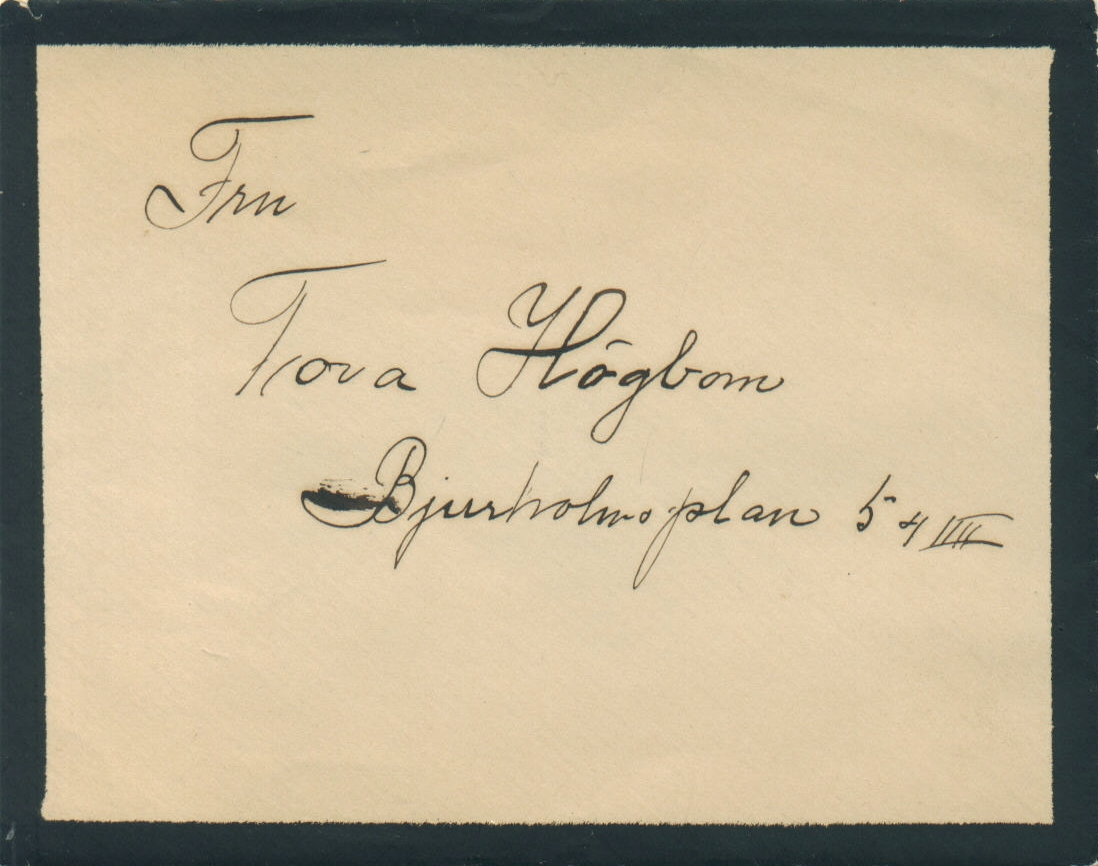 Fru
Tova Högbom
Bjurholmsplan 5 4 IIII